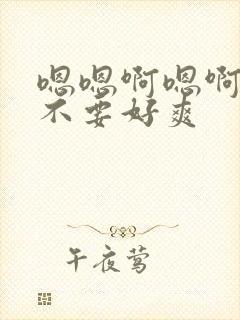 嗯嗯啊嗯啊
不要好爽
午夜莺